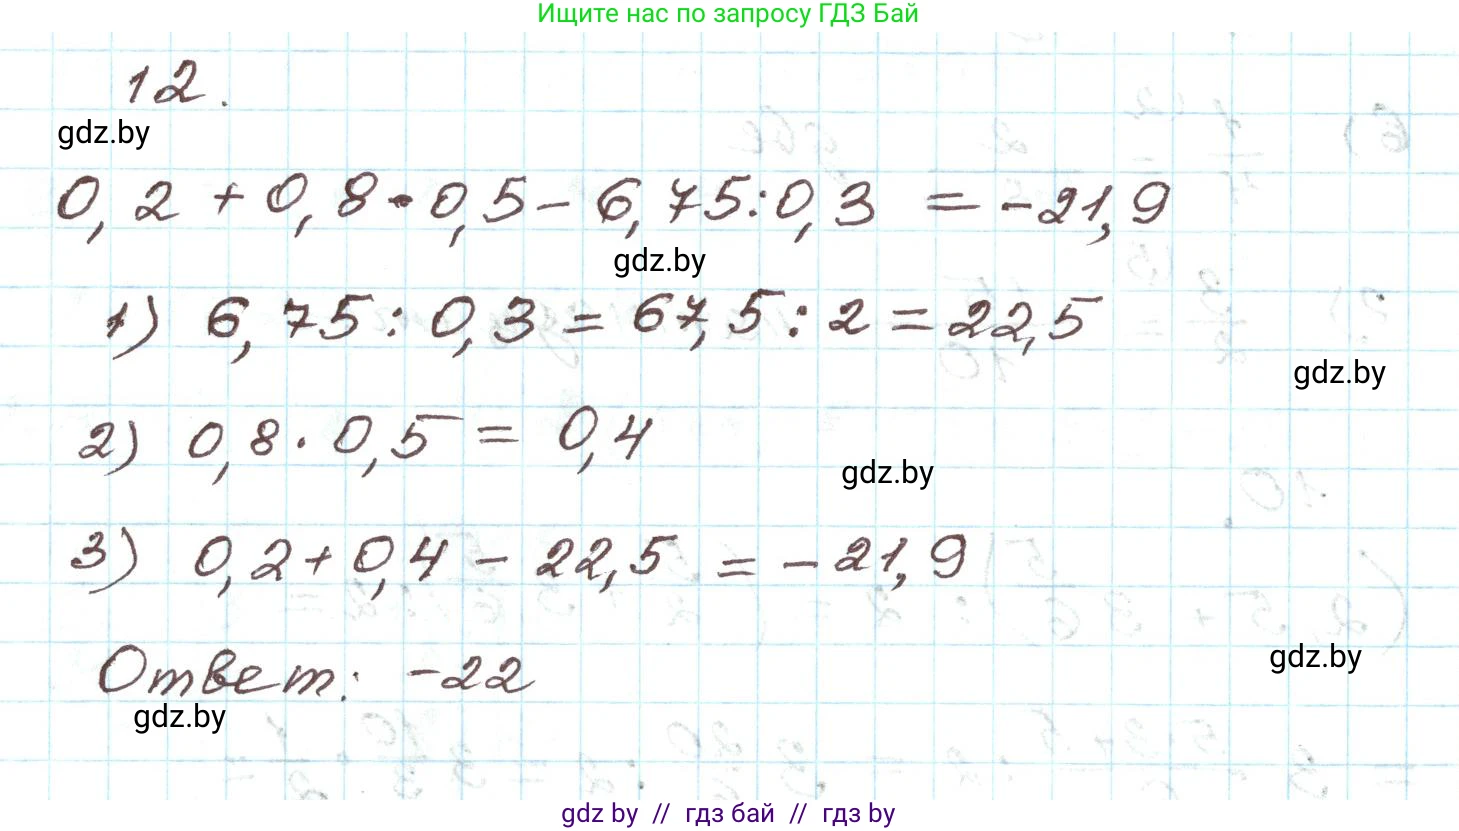 Ищите нас по запросу ГДЗ Бай
12.
gdz.by
0,2 + 0,8 · 0,5 - 6,75 : 0,3 = -21,9
gdz.by
1) 6,75 : 0,3 = 67,5 : 2 = 22,5
gdz.by
2) 0,8 · 0,5 = 0,4
gdz.by
3) 0,2 + 0,4 - 22,5 = -21,9
Ответ: -22
gdz.by
gdz.by
gdz by // гдз бай // гдз by